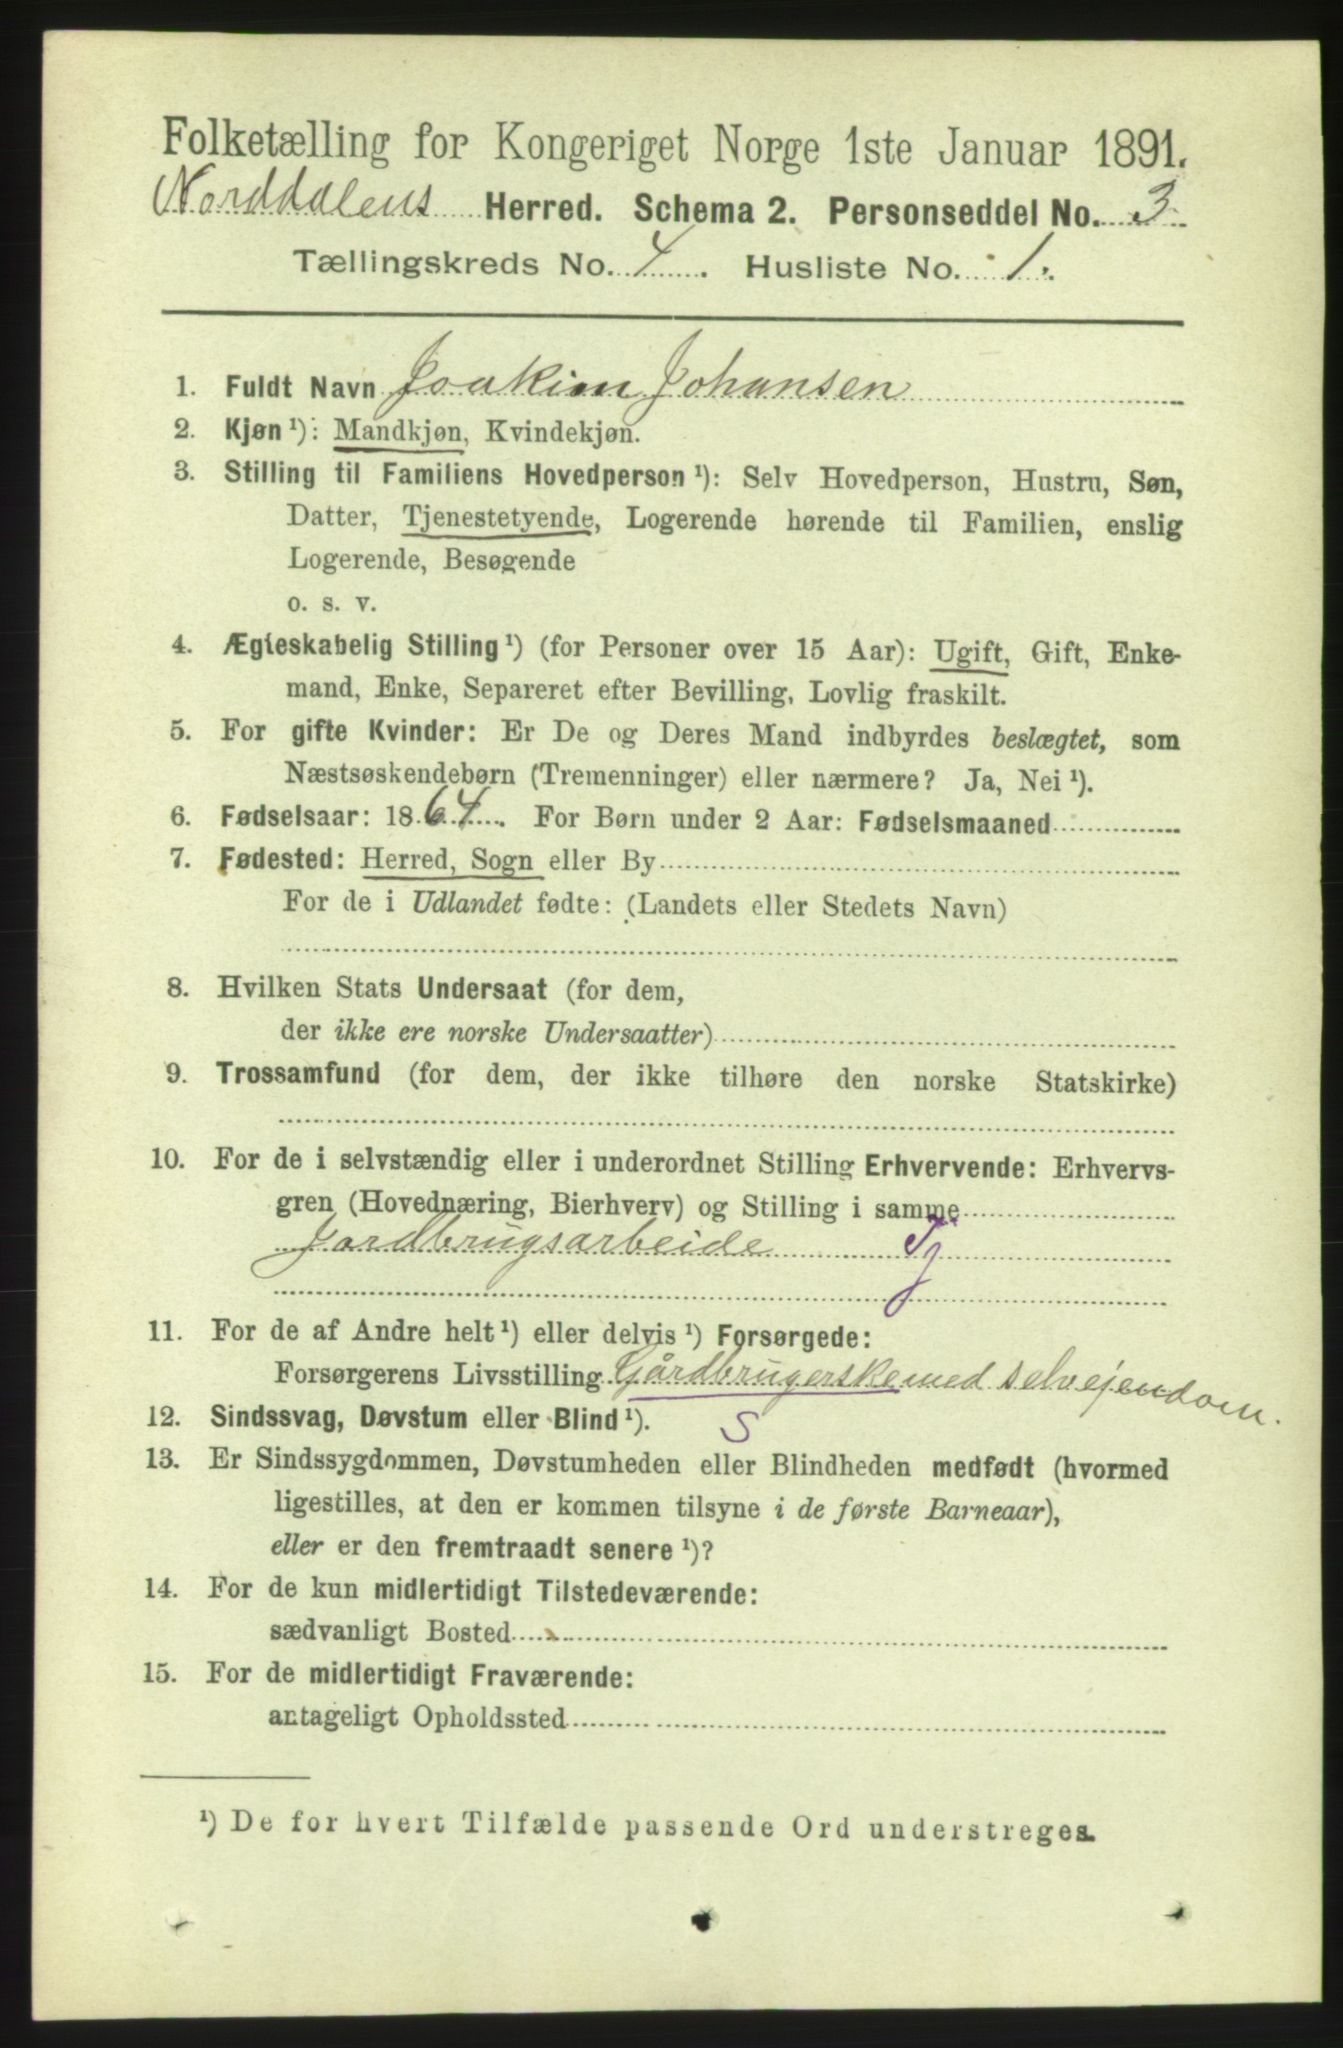 Folketælling for Kongeriget Norge 1ste Januar 1891.
Norddalens Herred. Schema 2. Personseddel No. 3
Tællingskreds No. 4. Husliste No. 1.
1. Fuldt Navn Joakim Johansen
2. Kjøn ¹): Mandkjøn, Kvindekjøn.
3. Stilling til Familiens Hovedperson ¹): Selv Hovedperson, Hustru, Søn,
Datter, Tjenestetyende, Logerende hørende til Familien, enslig
Logerende, Besøgende
o. s. v.
4. Ægteskabelig Stilling ¹) (for Personer over 15 Aar): Ugift, Gift, Enke-
mand, Enke, Separeret efter Bevilling, Lovlig fraskilt.
5. For gifte Kvinder: Er De og Deres Mand indbyrdes beslægtet, som
Næstsøskendebørn (Tremenninger) eller nærmere? Ja, Nei ¹).
6. Fødselsaar: 1864. For Børn under 2 Aar: Fødselsmaaned
7. Fødested: Herred, Sogn eller By
For de i Udlandet fødte: (Landets eller Stedets Navn)
8. Hvilken Stats Undersaat (for dem,
der ikke ere norske Undersaatter)
9. Trossamfund (for dem, der ikke tilhøre den norske Statskirke)
10. For de i selvstændig eller i underordnet Stilling Erhvervende: Erhvervs-
gren (Hovednæring, Bierhverv) og Stilling i samme
Jordbrugsarbeide Tj
11. For de af Andre helt ¹) eller delvis ¹) Forsørgede:
Forsørgerens Livsstilling Gårdbrugerske med selvejendom.
12. Sindssvag, Døvstum eller Blind ¹). S
13. Er Sindssygdommen, Døvstumheden eller Blindheden medfødt (hvormed
ligestilles, at den er kommen tilsyne i de første Barneaar),
eller er den fremtraadt senere ¹)?
14. For de kun midlertidigt Tilstedeværende:
sædvanligt Bosted
15. For de midlertidigt Fraværende:
antageligt Opholdssted
¹) De for hvert Tilfælde passende Ord understreges.